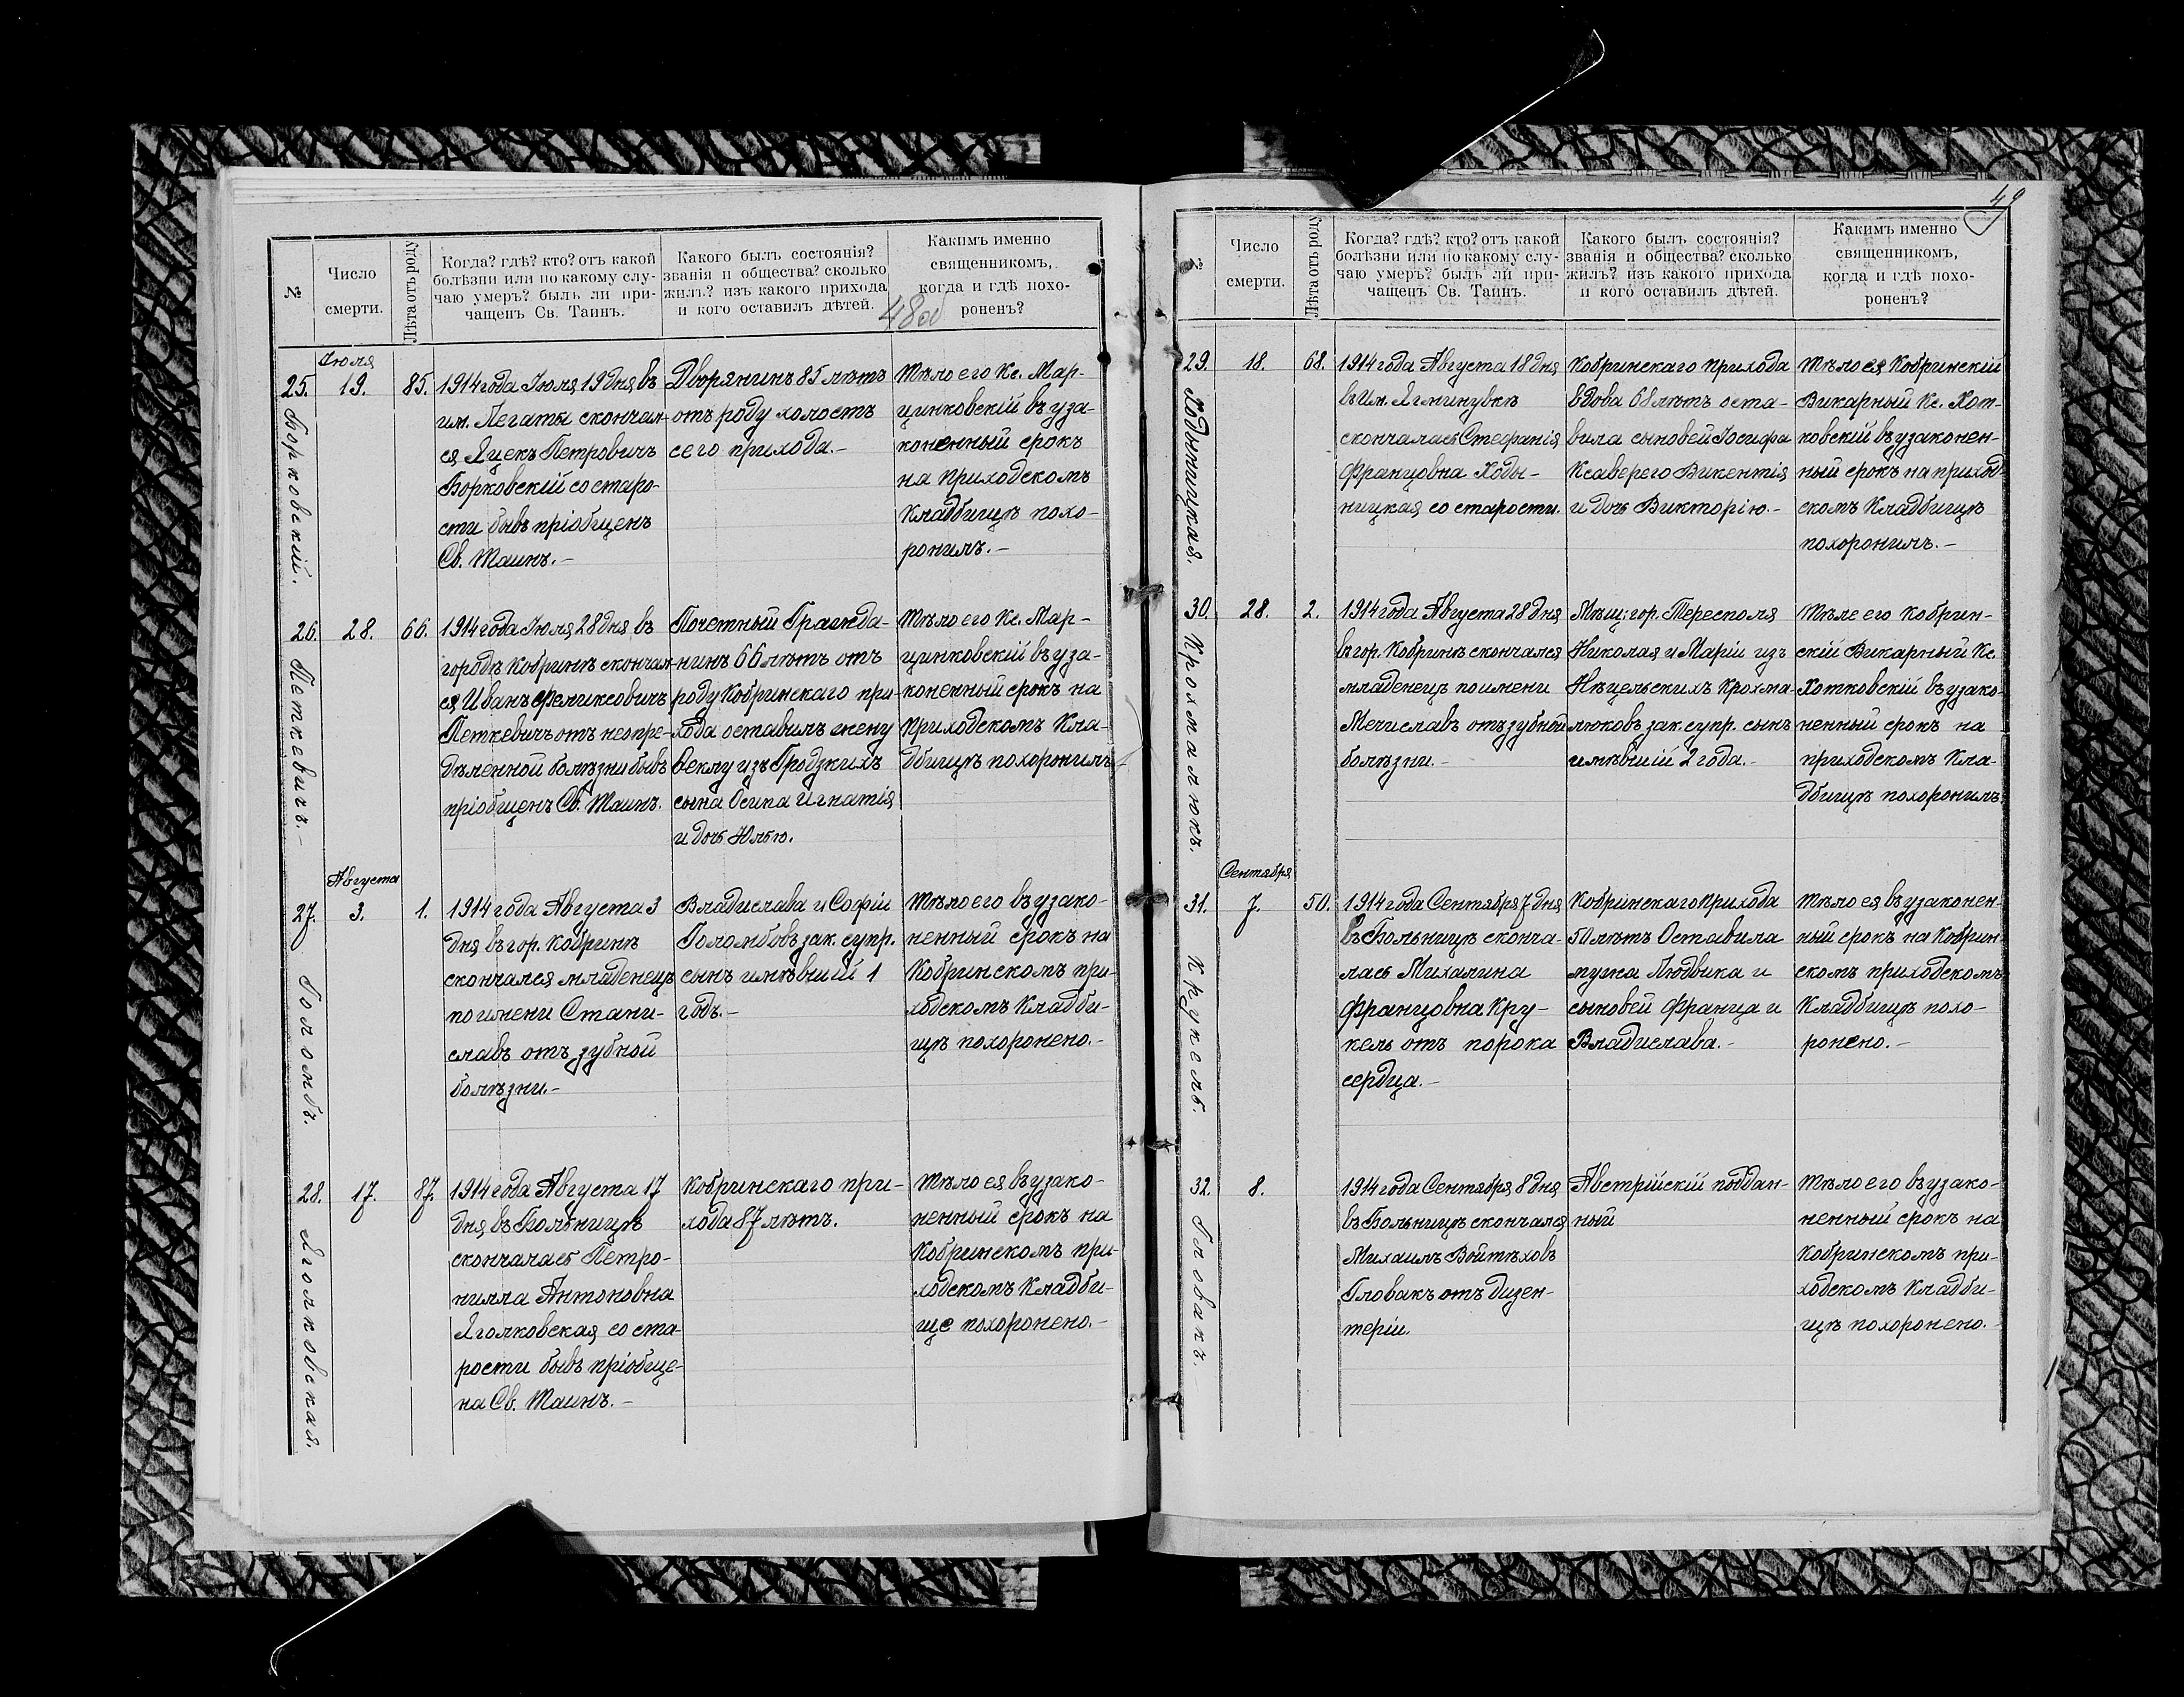 №
Число
смерти.
Лѣта отъ роду
Когда? гдѣ? кто? отъ какой
болѣзни или по какому слу-
чаю умеръ? былъ ли при-
чащенъ Св. Таинъ.
Какого былъ состоянія?
званія и общества? сколько
жилъ? изъ какого прихода
и кого оставилъ дѣтей.
48об
Какимъ именно
священникомъ,
когда и гдѣ похо-
роненъ?
Іюля
25.
Борковскій.
19.
85.
1914 года Іюля 19 дня въ
им. Легаты скончал-
ся Яцекъ Петровичъ
Борковскій со старо-
сти бывъ пріобщенъ
Св. Таинъ.-
Дворянинъ 85 лѣтъ
отъ роду холостъ
сего прихода.-
Тѣло его Кс. Мар-
цинковскій въ уза-
коненный срокъ
на Приходскомъ
Кладбищѣ похо-
ронилъ.-
26.
Петкевичъ.-
28.
66.
1914 года Іюля 28 дня въ
городѣ Кобринѣ скончал-
ся Иванъ Феликсовичъ
Петкевичъ отъ неопре-
дѣленной болѣзни бывъ
пріобщенъ Св. Таинъ.
Почетный Гражда-
нинъ 66 лѣтъ отъ
роду Кобринскаго при-
хода оставилъ жену
Феклу изъ Гродзкихъ
сына Осипа Игнатія
и дочь Юлію.
Тѣло его Кс. Мар-
цинковскій въ уза-
коненный срокъ на
Приходскомъ Кла-
дбищѣ похоронилъ.-
Августа
27.
Голомбъ.
3.
1.
1914 года Августа 3
дня въ гор. Кобринѣ
скончался младенецъ
по имени Стани-
славъ отъ зубной
болѣзни.-
Владислава и Софіи
Голомбовъ зак. супр.
сынъ имѣвшій 1
годъ.-
Тѣло его въ узако-
ненный срокъ на
Кобринскомъ при-
ходскомъ Кладби-
щѣ похоронено.-
28.
Яголковская.
17.
87.
1914 года Августа 17
дня въ Больницѣ
скончалась Петро-
нилла Антоновна
Яголковская со ста-
рости бывъ пріобще-
на Св. Таинъ.-
Кобринскаго при-
хода 87 лѣтъ.
Тѣло ея въ узако-
ненный срокъ на
Кобринскомъ при-
ходскомъ Кладби-
ще похоронено.-
49
№
Число
смерти.
Лѣта отъ роду
Когда? гдѣ? кто? отъ какой
болѣзни или по какому слу-
чаю умеръ? былъ ли при-
чащенъ Св. Таинъ.
Какого былъ состоянія?
званія и общества? сколько
жилъ? изъ какого прихода
и кого оставилъ дѣтей.
Какимъ именно
священникомъ,
когда и гдѣ похо-
роненъ?
29.
Ходыницкая.
18.
68.
1914 года Августа 18 дня
въ Им. Ягминувкѣ
скончалась Стефанія
Францовна Ходы-
ницкая со старости.
Кобринскаго прихода
вдова 68 лѣтъ оста-
вила сыновей Іосифа
Ксаверего Викентія
и дочь Викторію.-
Тѣло ея Кобринскій
Викарный Кс. Хот-
ковскій въ узаконен-
ный срокъ на приход-
скомъ Кладбищѣ
похоронилъ.-
30.
Крохмалюкъ.
28.
2.
1914 года Августа 28 дня
въ гор. Кобринѣ скончался
младенецъ по имени
Мечиславъ отъ зубной
болѣзни.-
Мѣщ: гор. Тересполя
Николая и Маріи изъ
Нѣцельскихъ Крохма-
люковъ зак. супр. сынъ
имѣвшій 2 года.-
Тѣле его Кобрин-
скій Викарный Кс.
Хотковскій въ узако-
ненный срокъ на
приходскомъ Кла-
дбищѣ похоронилъ.
Сентября
31.
Крукель.
7.
50.
1914 года Сентября 7 дня
въ Больницѣ сконча-
лась Михалина
Францовна Кру-
кель отъ порока
сердца.-
Кобринскаго Прихода
50 лѣтъ Оставила
мужа Людвика и
сыновей Франца и
Владислава.-
Тѣло ея въ узаконен-
ный срокъ на Кобрин-
скомъ приходскомъ
Кладбищѣ похо-
ронено.-
32.
Гловакъ.
8.
1914 года Сентября 8 дня
въ Больницѣ скончался
Михаилъ Войтѣховъ
Гловакъ отъ дизен-
теріи.
Австрійскій поддан-
ный
Тѣло его въ узако-
ненный срокъ на
Кобринскомъ при-
ходскомъ Кладби-
щѣ похоронено.-